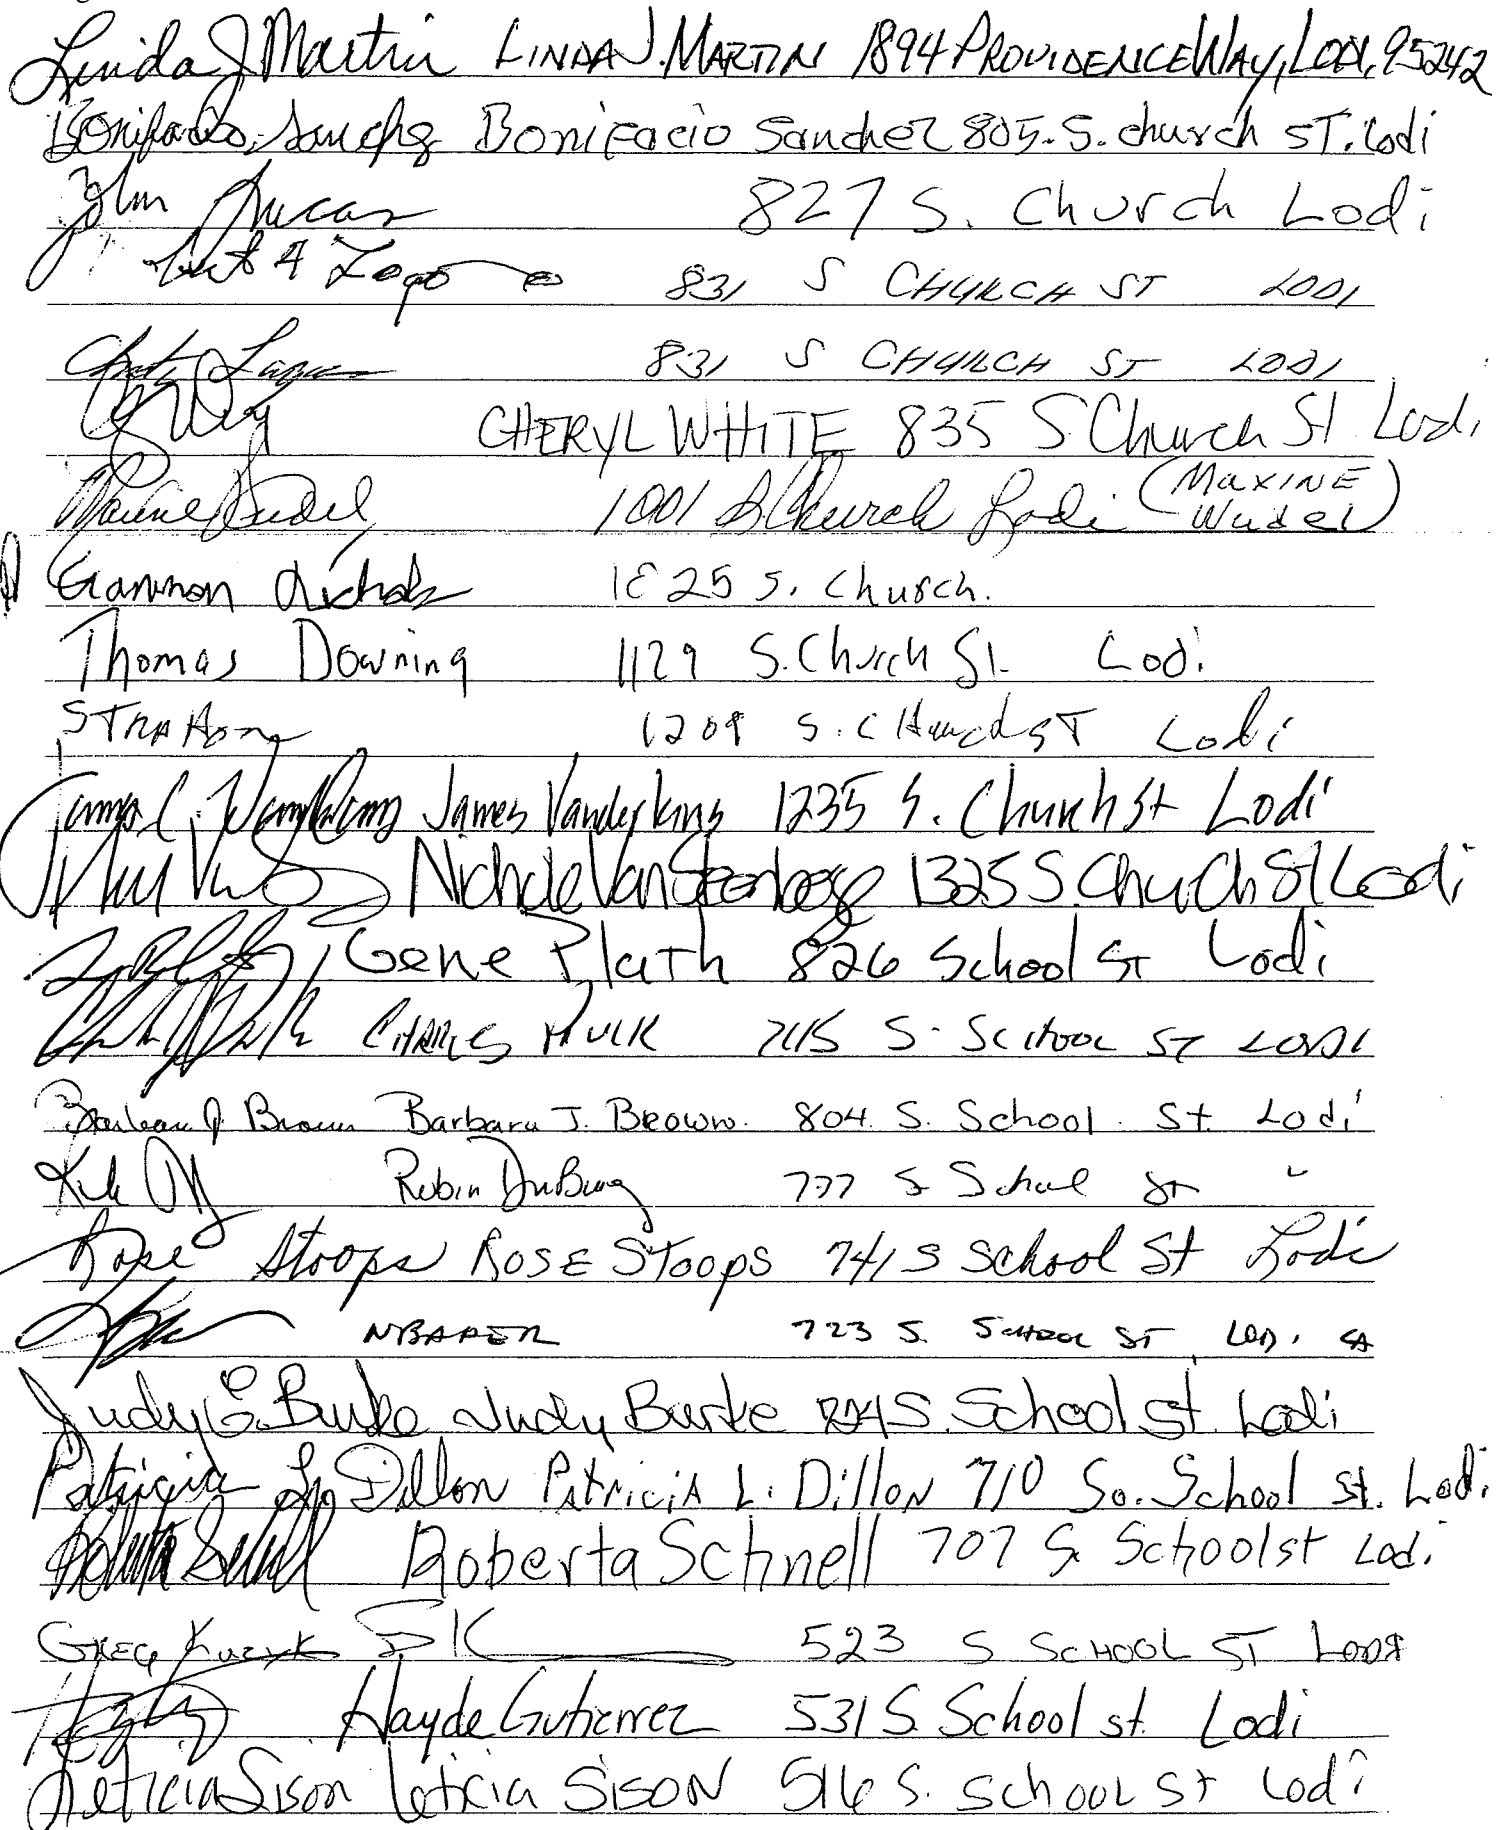 Linda J Martin LINDA J. MARTIN 1894 PROVIDENCE WAY, LODI, 95242
Bonifacio Sanchez Bonifacio Sanchez 805. S. church ST. Lodi
John Lucas 827 S. Church Lodi
831 S CHURCH ST LODI
831 S CHURCH ST LODI
CHERYL WHITE 835 S Church St Lodi
Maxine Wudel 1001 S Church Lodi (MAXINE Wudel)
Gannon Nichols S. Church.
Thomas Downing 1129 S. Church St. Lodi
1209 S. Church ST Lodi
James C. James 1235 S. Church St Lodi
Nichole Van Steenberge 1325 S. Church St Lodi
Gene Plath 826 School ST Lodi
CHARLES S. SCHOOL ST LODI
Barbara J Brown Barbara J. Brown. 804 S. School St. Lodi
Robin DuBurg 777 S School St "
Rose Stoops ROSE STOOPS 741 S School St Lodi
723 S. SCHOOL ST, LODI. CA
Judy E. Burke Judy Burke S. School St. Lodi
Patricia L. Dillon PAtriciA L. DilloN 710 So. School St. Lodi
Roberta Schnell 707 S. School st Lodi
GREG 523 S SCHOOL ST LODI
Hayde Gutierrez 531 S. School st. Lodi
Leticia Sison Leticia SISON 516 S. School St Lodi